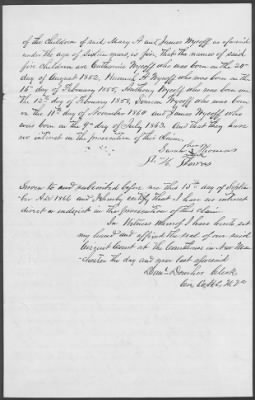 of the children of said Mary A and James Wycoff as aforesaid
under the age of Sixteen years, is five, that the names of said
five children are Catharine Wycoff who was born on the 20th
day of August 1852, H Wycoff who was born on the
15th day of February 1855, Anthony Wycoff who was born on
the 12th day of February 1857, Wycoff was born
on the 11th day of November 1860 and James Wycoff who
was born on the 9th day of July 1863. And that they have
no interest in the prosecution of this claim
his
Thomas
mark
Sworn to and subscribed before me this 15th day of Septem
ber AD 1866 and I hereby certify that I have no interest
direct or indirect in the prosecution of this claim.
In Witness whereof I have hereto set
my hand and affixed the seal of our said
Court at the Courthouse in New
the day and year last aforesaid
Clerk